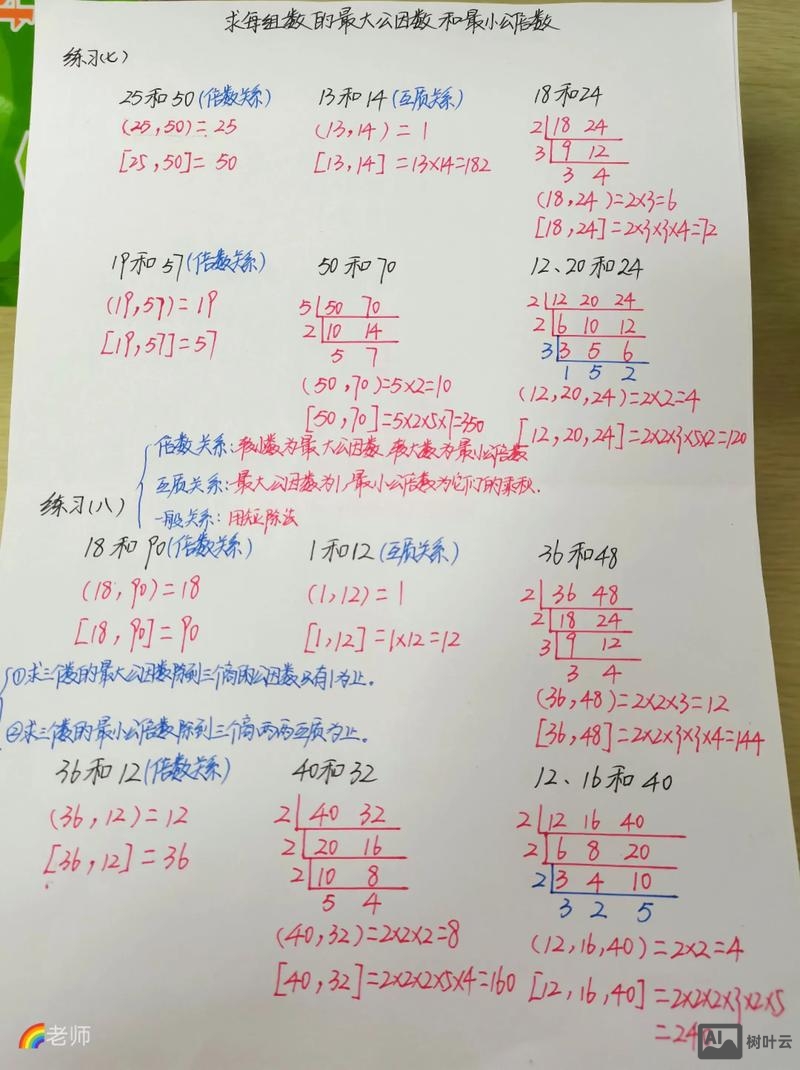 求每组数的最大公因数和最小公倍数
练习(七)
25和50(倍数关系)
(25,50)=25
[25,50]=50
13和14(互质关系)
(13,14)=1
[13,14]=13×14=182
18和24
2 18 24
3 9 12
3 4
(18,24)=2×3=6
[18,24]=2×3×3×4=72
19和57(倍数关系)
(19,57)=19
[19,57]=57
50和70
5 50 70
2 10 14
5 7
(50,70)=5×2=10
[50,70]=5×2×5×7=350
12、20和24
2 12 20 24
2 6 10 12
3 3 5 6
1 5 2
(12,20,24)=2×2=4
[12,20,24]=2×2×3×5×2=120
倍数关系:较小数为最大公因数,较大数为最小公倍数
互质关系:最大公因数为1,最小公倍数为它们的乘积.
一般关系:用短除法
练习(八)
18和90(倍数关系)
(18,90)=18
[18,90]=90
1和12(互质关系)
(1,12)=1
[1,12]=1×12=12
36和48
2 36 48
2 18 24
3 9 12
3 4
(36,48)=2×2×3=12
[36,48]=2×2×3×3×4=144
①求三个数的最大公因数除到三个商的公因数只有1为止。
②求三个数的最小公倍数除到三个商两两互质为止。
36和12(倍数关系)
(36,12)=12
[36,12]=36
40和32
2 40 32
2 20 16
2 10 8
5 4
(40,32)=2×2×2=8
[40,32]=2×2×2×5×4=160
12、16和40
2 12 16 40
2 6 8 20
2 3 4 10
3 2 5
(12,16,40)=2×2=4
[12,16,40]=2×2×2×3×2×5
=240
老师
AI 树叶云